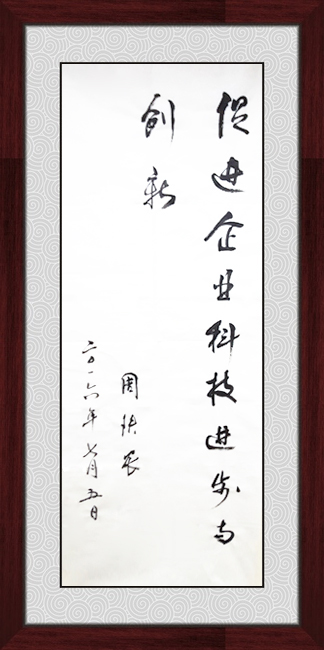 促进企业科技进步与
创新
周铁农
二〇一六年七月五日